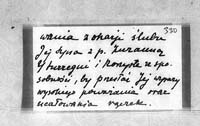 330
wania z okazji ślubu
Jej syna z p. Zuzanną
Iturregui i korzysta ze spo-
sobności, by przesłać Jej wyrazy
wysokiego poważania oraz
ucałowania rączek.